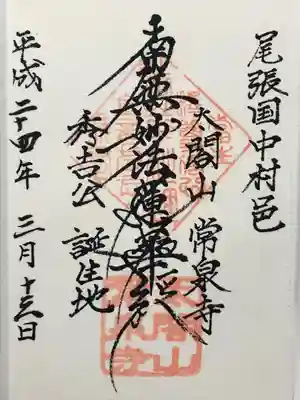 尾張国中村邑
太閤山 常泉寺
南無妙法蓮華経
秀吉公 誕生地
平成二十四年 三月十三日